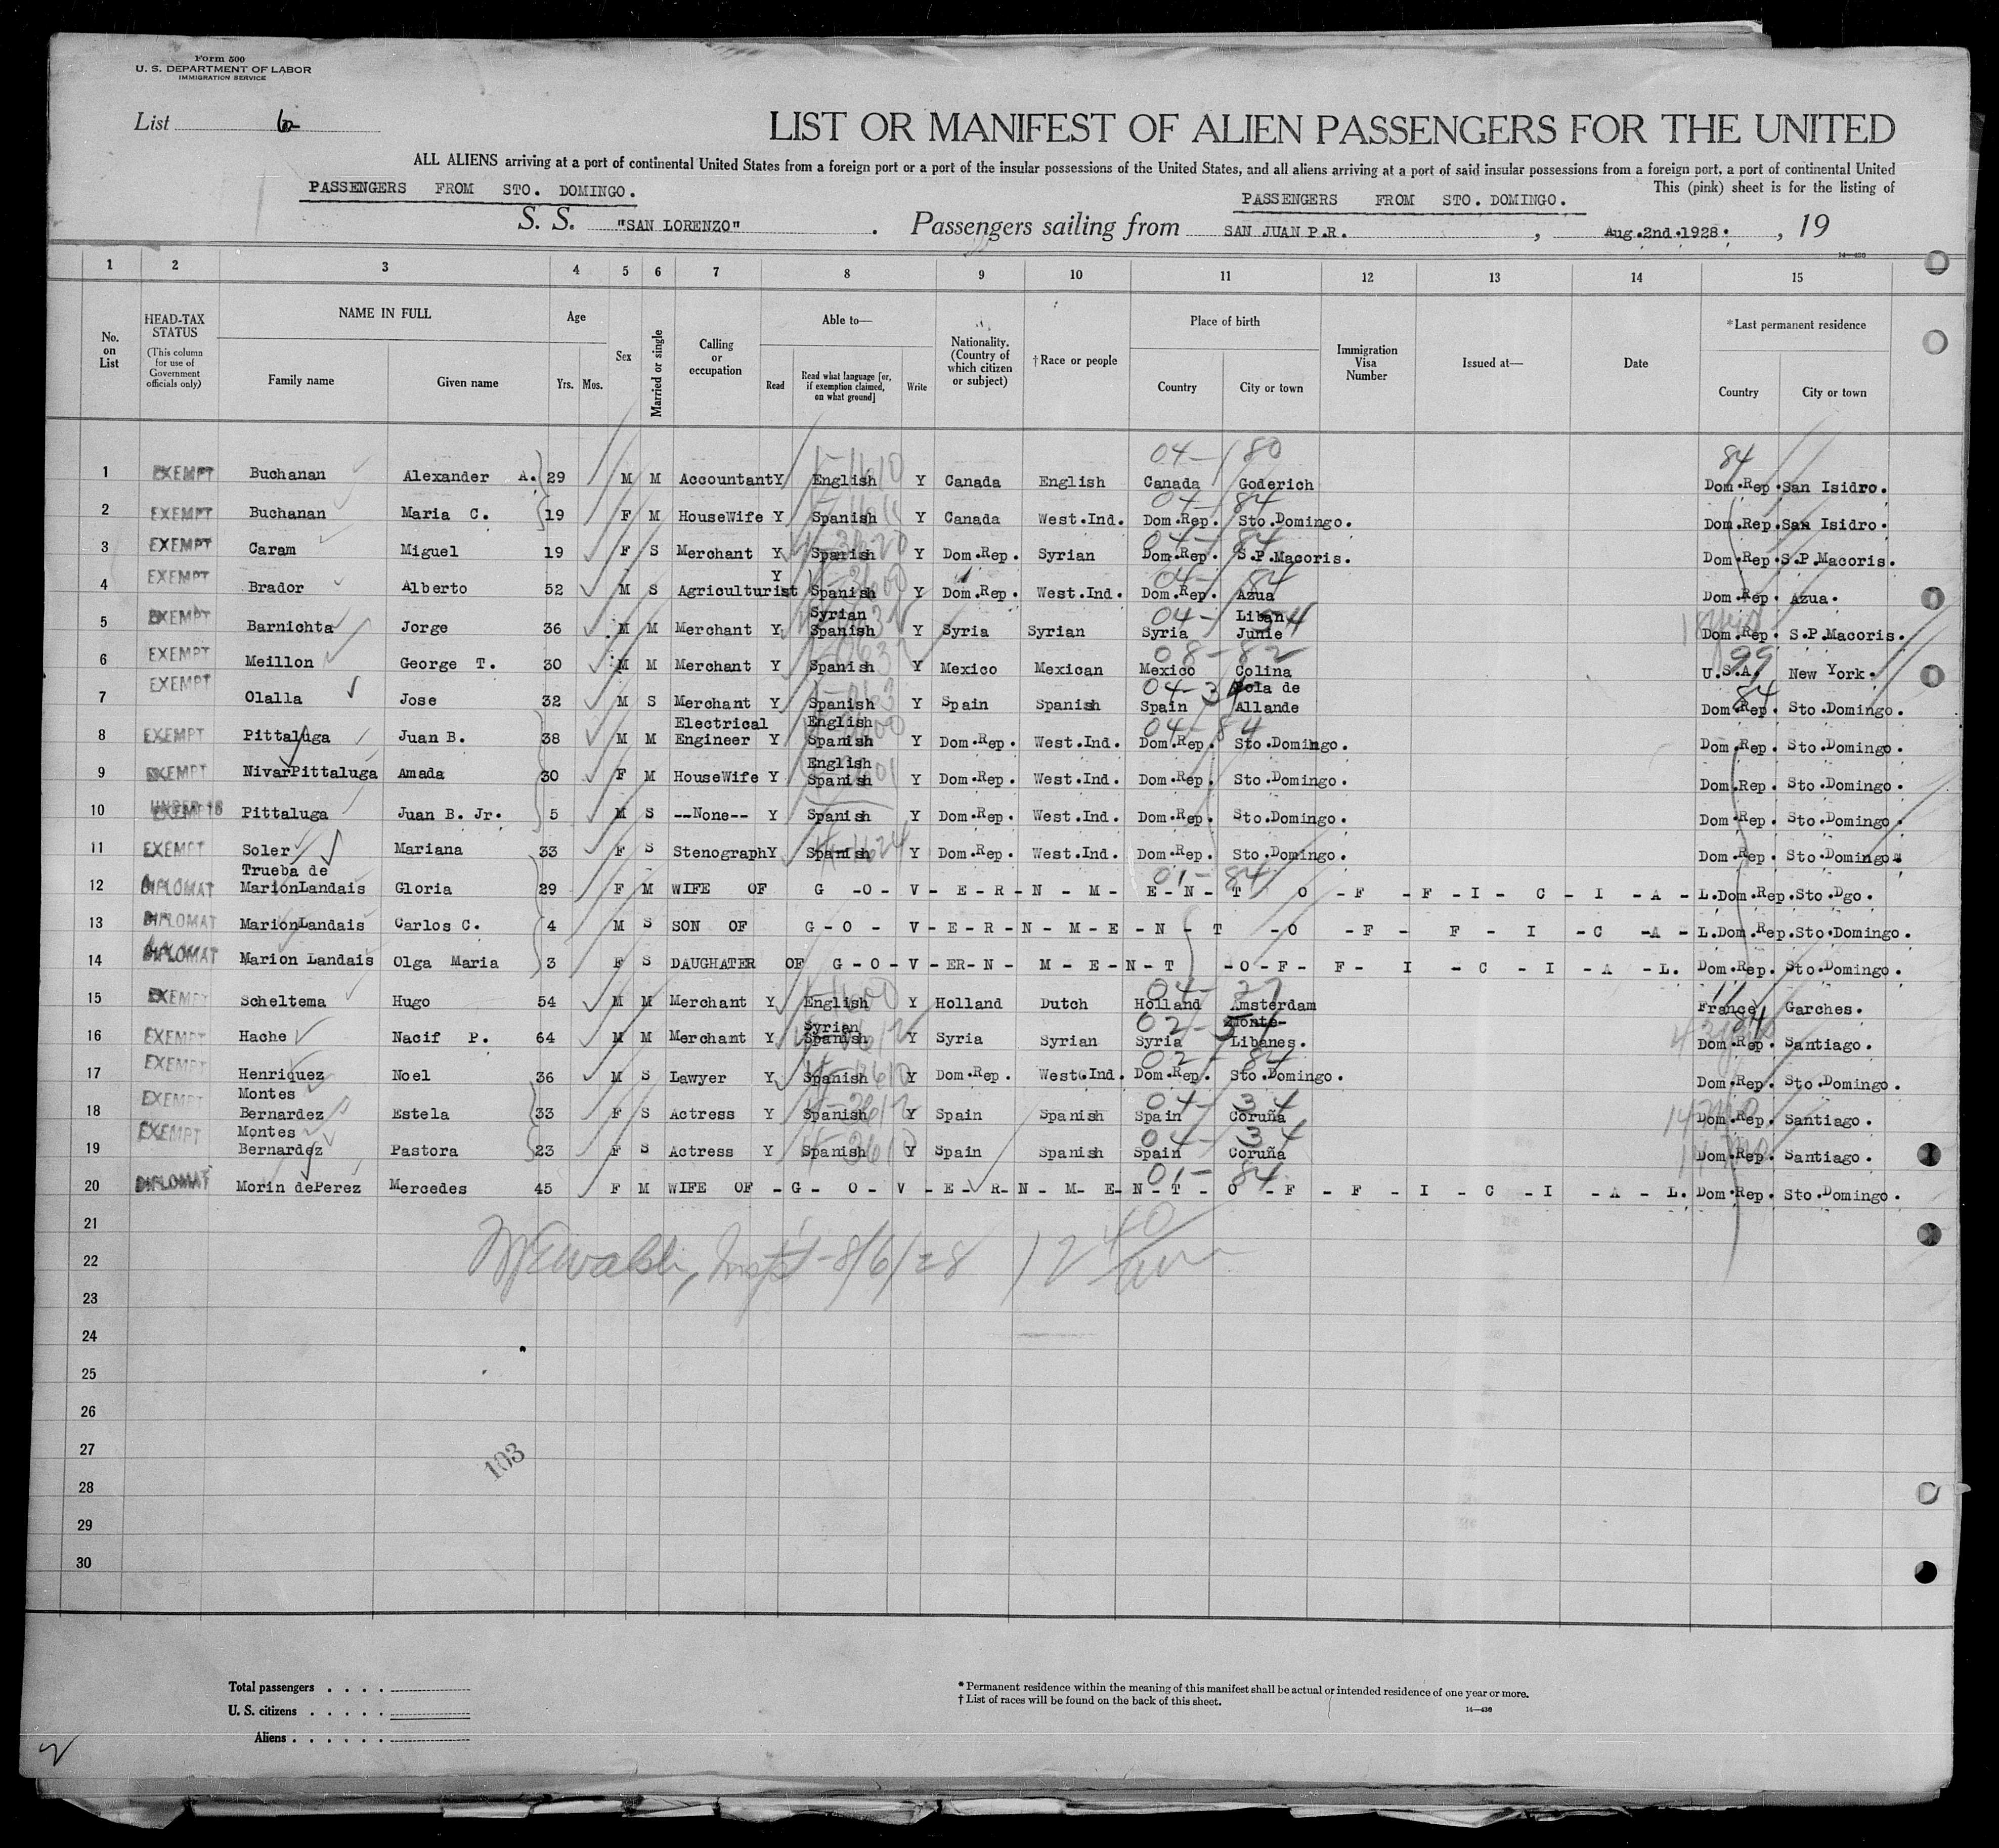 Form 500
U. S. DEPARTMENT OF LABOR
IMMIGRATION SERVICE
List
LIST OR MANIFEST OF ALIEN PASSENGERS FOR THE UNITED
ALL ALIENS arriving at a port of continental United States from a foreign port or a port of the insular possessions of the United States, and all aliens arriving at a port of said insular possessions from a foreign port, a port of continental United
This (pink) sheet is for the listing of
PASSENGERS FROM STO. DOMINGO. PASSENGERS FROM STO. DOMINGO.
S. S. "SAN LORENZO" . Passengers sailing from SAN JUAN P.R. , Aug.2nd.1928. , 19
14—430
1 2 3 4 5 6 7 8 9 10 11 12 13 14 15
No. on List
HEAD-TAX STATUS
(This column for use of Government officials only)
NAME IN FULL
Family name Given name
Age
Yrs. Mos.
Sex
Married or single
Calling or occupation
Able to—
Read Read what language [or, if exemption claimed, on what ground] Write
Nationality. (Country of which citizen or subject)
†Race or people
Place of birth
Country City or town
Immigration Visa Number
Issued at—
Date
*Last permanent residence
Country City or town
04- 80 84
1 EXEMPT Buchanan Alexander A. 29 M M Accountant Y English Y Canada English Canada Goderich Dom.Rep. San Isidro.
04- 84
2 EXEMPT Buchanan Maria C. 19 F M HouseWife Y Spanish Y Canada West.Ind. Dom.Rep. Sto.Domingo. Dom.Rep. San Isidro.
04- 84
3 EXEMPT Caram Miguel 19 F S Merchant Y Spanish Y Dom.Rep. Syrian Dom.Rep. S.P.Macoris. Dom.Rep. S.P.Macoris.
04- 84
4 EXEMPT Brador Alberto 52 M S Agriculturist Y Spanish Y Dom.Rep. West.Ind. Dom.Rep. Azua Dom.Rep. Azua.
04- 54
5 EXEMPT Barnichta Jorge 36 M M Merchant Y Syrian Spanish Y Syria Syrian Syria Liban, Junie Dom.Rep. S.P.Macoris.
08-82 99
6 EXEMPT Meillon George T. 30 M M Merchant Y Spanish Y Mexico Mexican Mexico Colina U.S.A. New York.
04-34 84
7 EXEMPT Olalla Jose 32 M S Merchant Y Spanish Y Spain Spanish Spain Pola de Allande Dom.Rep. Sto.Domingo.
04-84
8 EXEMPT Pittaluga Juan B. 38 M M Electrical Engineer Y English Spanish Y Dom.Rep. West.Ind. Dom.Rep. Sto.Domingo. Dom.Rep. Sto.Domingo.
9 EXEMPT NivarPittaluga Amada 30 F M HouseWife Y English Spanish Y Dom.Rep. West.Ind. Dom.Rep. Sto.Domingo. Dom.Rep. Sto.Domingo.
10 UNDER 16 EXEMPT Pittaluga Juan B. Jr. 5 M S --None-- Y Spanish Y Dom.Rep. West.Ind. Dom.Rep. Sto.Domingo. Dom.Rep. Sto.Domingo.
11 EXEMPT Soler Mariana 33 F S Stenograph Y Spanish Y Dom.Rep. West.Ind. Dom.Rep. Sto.Domingo. Dom.Rep. Sto.Domingo.
01-84
12 DIPLOMAT Trueba de MarionLandais Gloria 29 F M WIFE OF G -O- V- E-R-N - M- E-N- T O -F -F-I- C - I -A-L.Dom.Rep.Sto.Dgo.
13 DIPLOMAT MarionLandais Carlos C. 4 M S SON OF G-O- V-E-R-N-M-E-N- T -O -F- F- I -C -A-L.Dom.Rep.Sto.Domingo.
14 DIPLOMAT Marion Landais Olga Maria 3 F S DAUGHATER OF G-O-V-ER-N- M-E-N-T -O-F- F- I -C-I-A-L. Dom.Rep. Sto.Domingo.
04- 27
15 EXEMPT Scheltema Hugo 54 M M Merchant Y English Y Holland Dutch Holland Amsterdam France Garches.
02-54 84
16 EXEMPT Hache Nacif P. 64 M M Merchant Y Syrian Spanish Y Syria Syrian Syria Monte-Libanes. Dom.Rep. Santiago.
02- 84
17 EXEMPT Henriquez Noel 36 M S Lawyer Y Spanish Y Dom.Rep. West.Ind. Dom.Rep. Sto.Domingo. Dom.Rep. Sto.Domingo.
04- 34
18 EXEMPT Montes Bernardez Estela 33 F S Actress Y Spanish Y Spain Spanish Spain Coruña Dom.Rep. Santiago.
04- 34
19 EXEMPT Montes Bernardez Pastora 23 F S Actress Y Spanish Y Spain Spanish Spain Coruña Dom.Rep. Santiago.
01- 84
20 DIPLOMAT Morin dePerez Mercedes 45 F M WIFE OF -G- O-V -E-R-N-M-E-N-T- O -F -F- I -C -I -A -L. Dom.Rep. Sto.Domingo.
21
22 8/6/28 12 40
23
24
25
26
27
103
28
29
30
Total passengers . . . .
U. S. citizens . . . . .
Aliens . . . . . .
* Permanent residence within the meaning of this manifest shall be actual or intended residence of one year or more.
† List of races will be found on the back of this sheet.
14—430